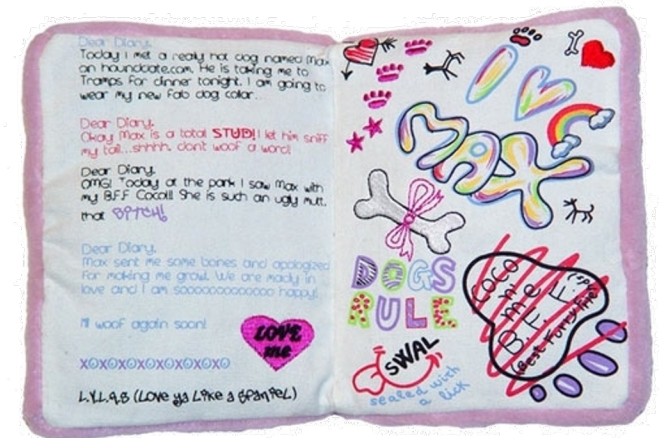 Dear Diary,
Today I met a really hot dog named Max
on hounddate.com. He is taking me to
Tramps for dinner tonight. I am going to
wear my new fab dog collar...
Dear Diary,
Okay Max is a total STUD! I let him sniff
my tail...shhhh, don't woof a word!
Dear Diary,
OMG! Today at the park I saw Max with
my B.F.F Coco!!! She is such an ugly mutt,
that BITCH!
Dear Diary,
Max sent me some bones and apologized
for making me growl. We are madly in
love and I am soooooooooooooo happy!
I'll woof again soon!
LOVE
me
XOXOXOXOXOXOXOXO
L.Y.L.A.S (Love ya Like a Spaniel)
I
MAX
DOGS
RULE
SWAL
sealed with
a lick
COCO
me
B.F.F.
(Best Furry Friends)